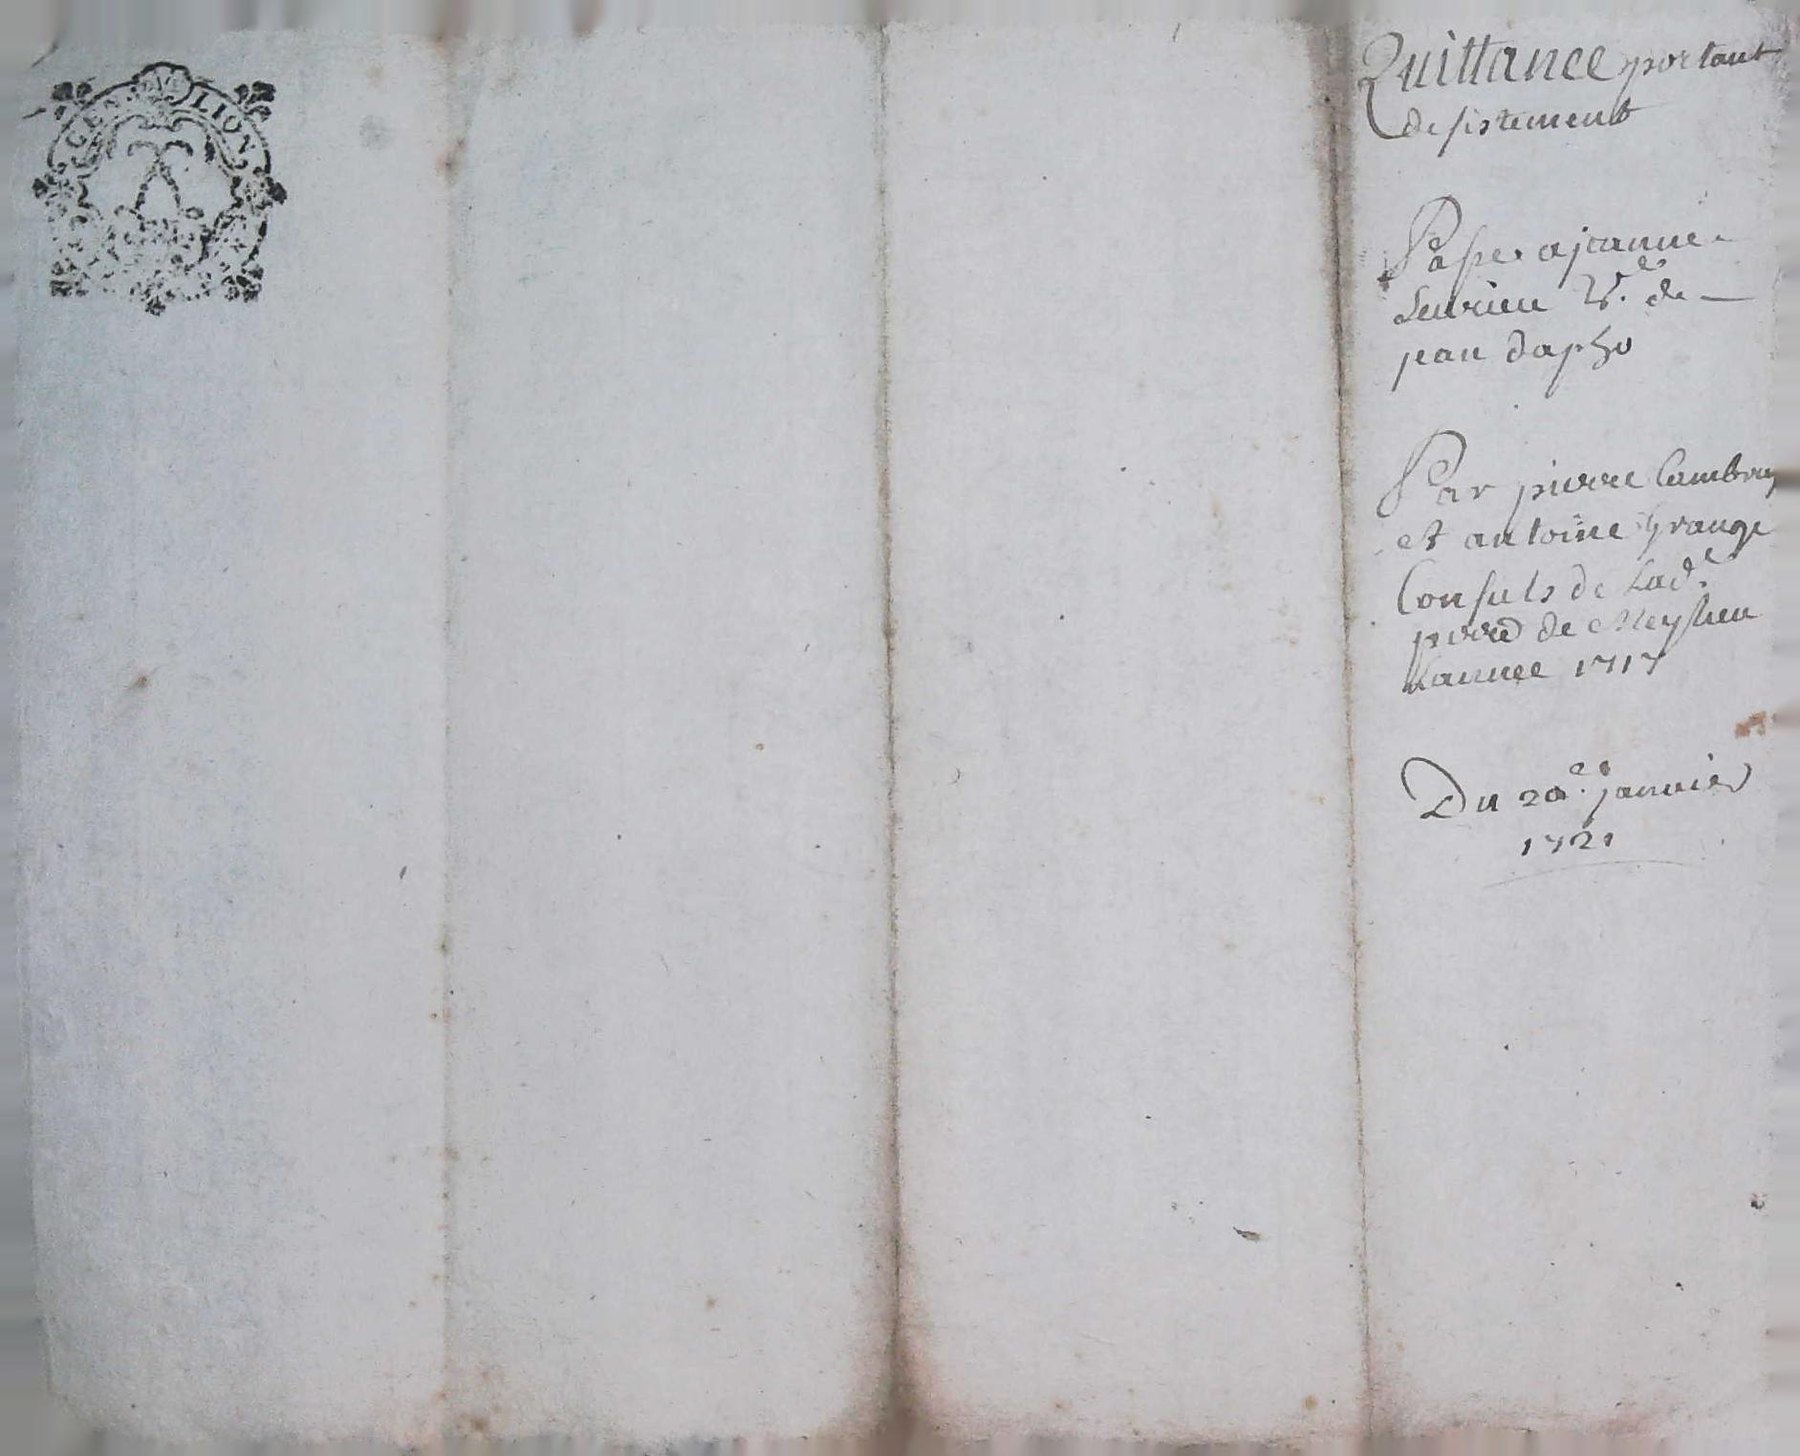 GEN. LION
Quittance portant
desistement
Passer a jeanne
Leurieu Vᵉ. de
jean dapho
Par pierre Cambray
et antoine Grange
Consuls de Ladᵉ.
de Meyssieu
Lannee 1717
Du 20ᵉ. janvier
1721